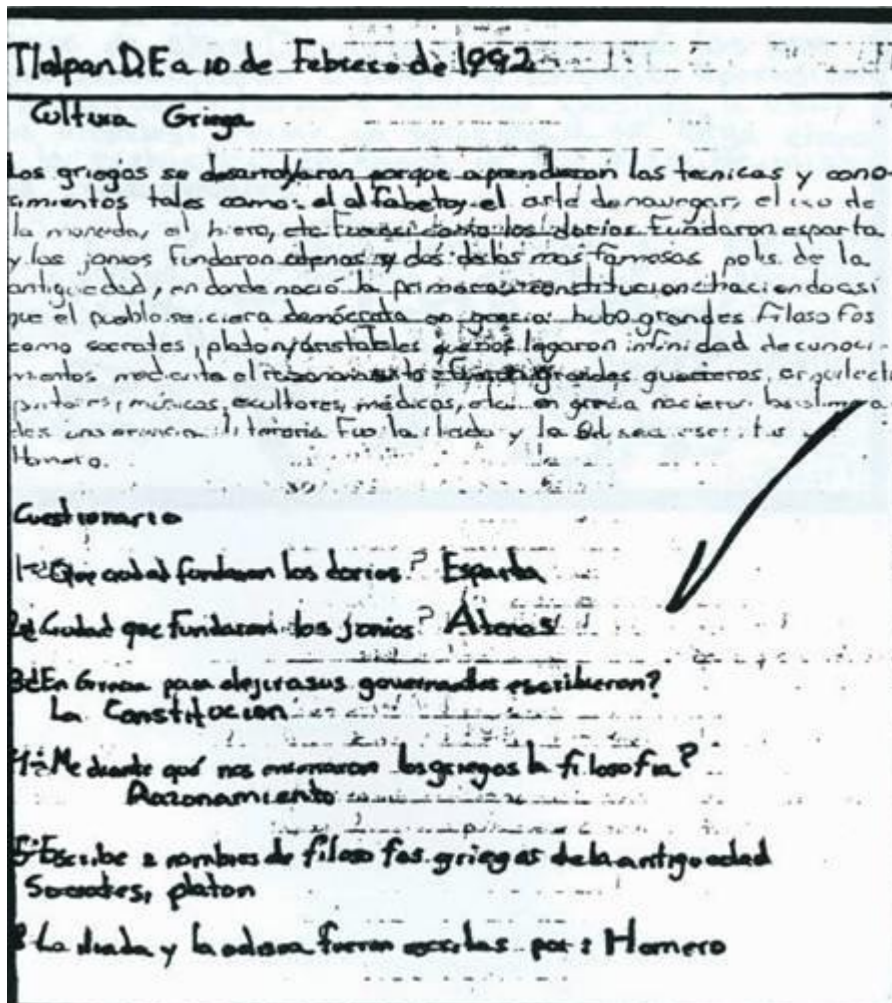 Tlalpan D.F a 10 de Febrero de 1992
Cultura Griega
Los griegos se desarrollaron porque aprendieron las tecnicas y cono-
cimientos tales como: el alfabeto, el arte de navegar, el uso de
la moneda, el hiero, etc Fue asi como los dorios Fundaron esparta
y los jonios Fundaron atenas y dos de las mas famosas polis de la
antiguedad, en donde nació la primera constitucion haciendo asi
que el pueblo se ciera demócrata en grecia hubo grandes Filosofos
como socrates, platon, aristoteles que nos legaron infinidad de conoci-
mientos mediante el razonamiento grandes guerreros, arquitect
pintores, músicos, escultores, médicos, etc. en grecia nacieron
literaria Fue la iliada y la Odisea escritas
Homero.
Cuestionario
1- Que ciudad fundaron los dorios? Esparta
2- Ciudad que Fundaron los jonios? Atenas
3- En Grecia para elejir a sus governantes escribieron?
La Constitucion
4- Mediante qué nos enseñaron los griegos la filosofia?
Razonamiento
5- Escribe 2 nombres de filosofos griegos de la antiguedad
Socrates, platon
La iliada y la odisea fueron escritas por: Homero